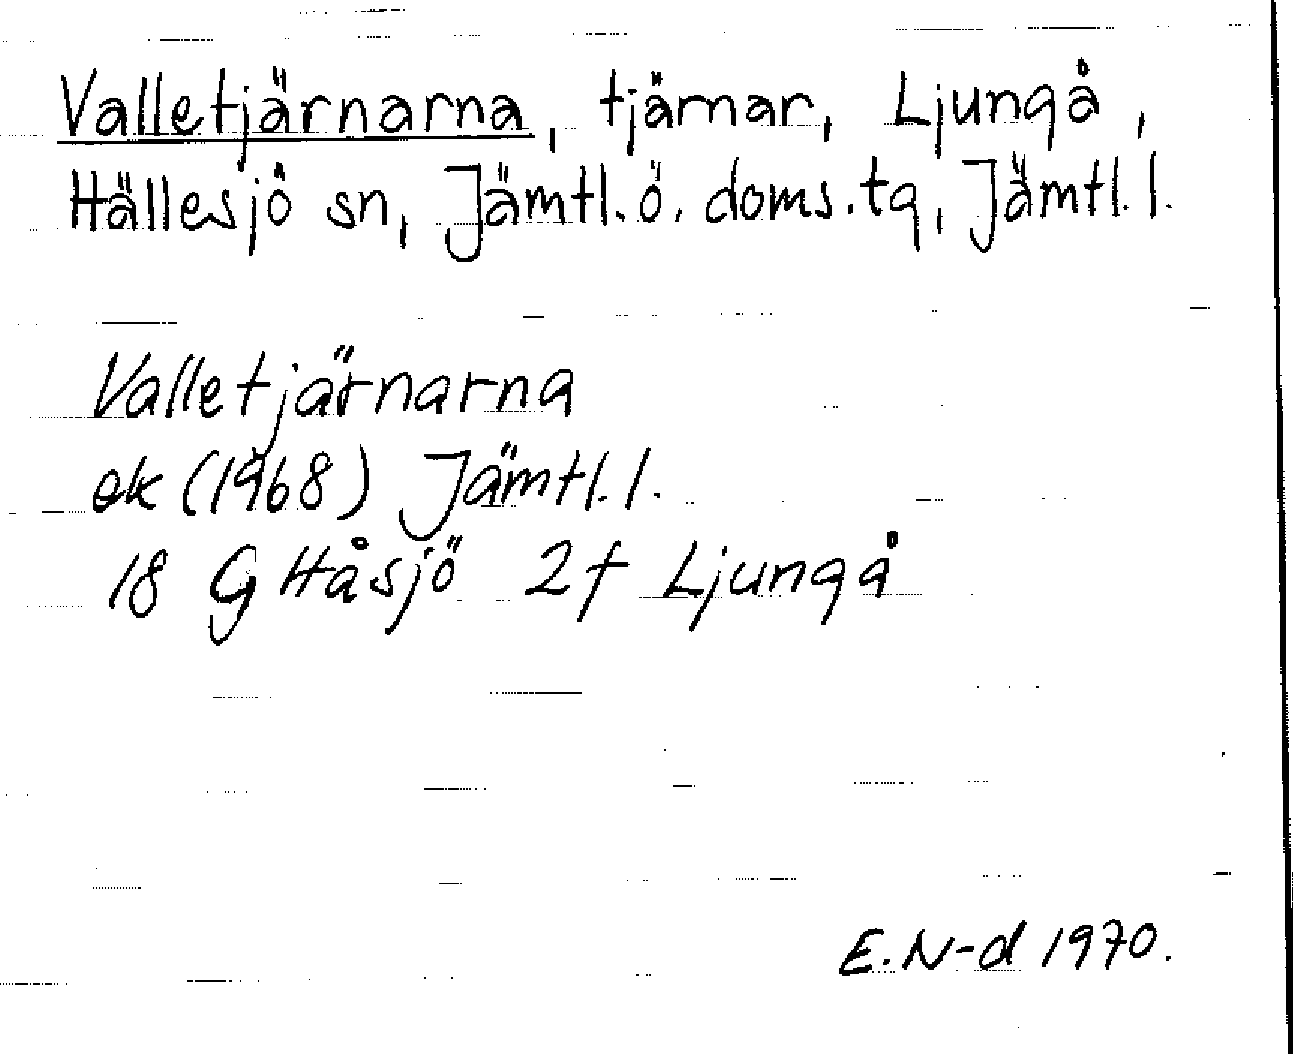 Valletjärnarna, tjärnar, Ljungå,
Hällesjö sn, Jämtl. ö. doms.tg, Jämtl. l.
Valletjärnarna
ek (1968) Jämtl. l.
18 G Håsjö 2f Ljungå
E. N-d 1970.